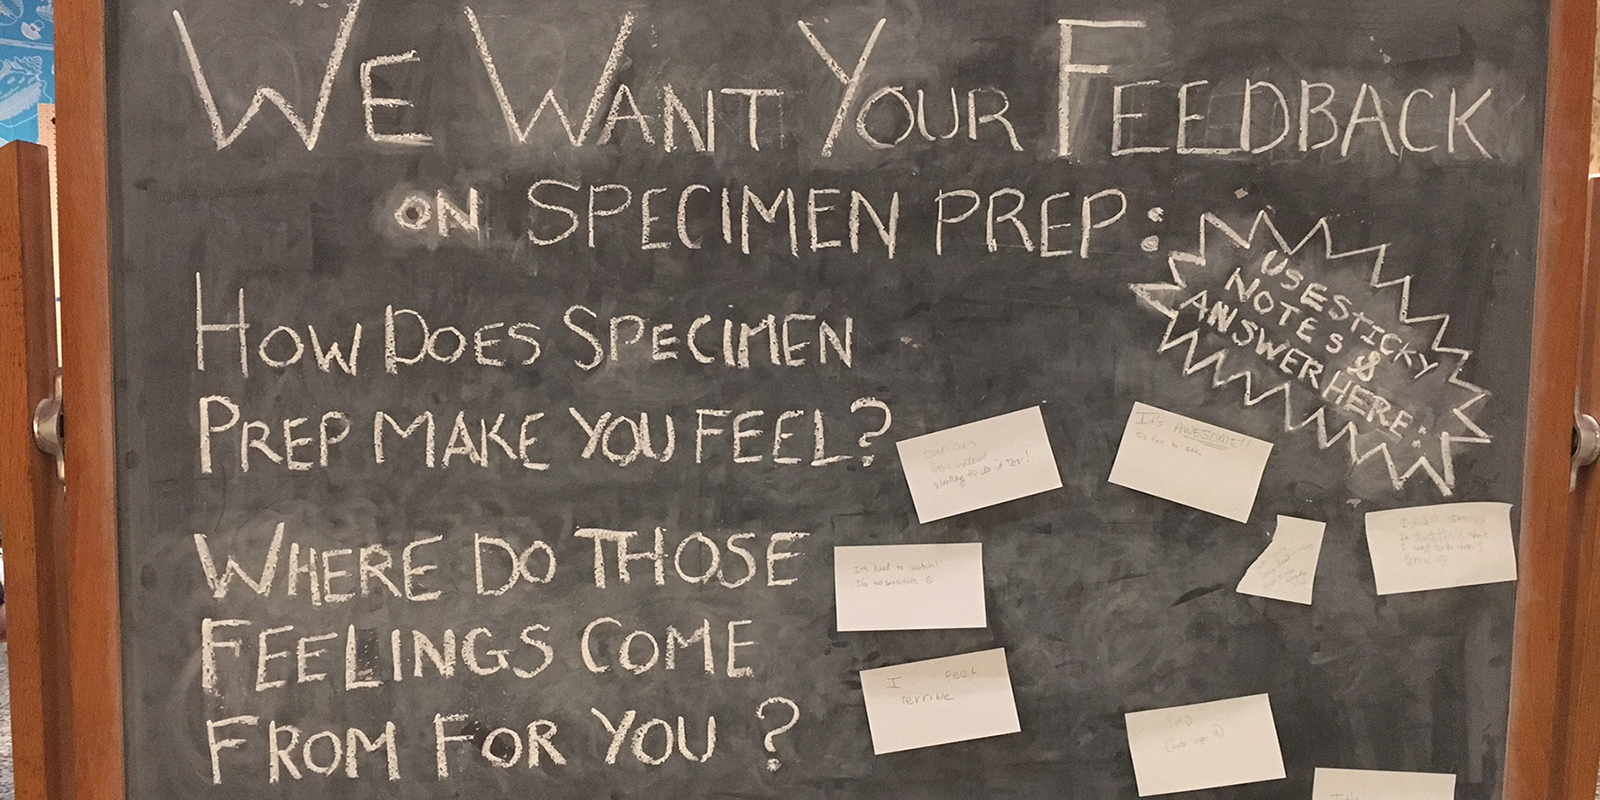 WE WANT YOUR FEEDBACK
ON SPECIMEN PREP:
USE STICKY
NOTES &
ANSWER HERE:
HOW DOES SPECIMEN
PREP MAKE YOU FEEL?
WHERE DO THOSE
FEELINGS COME
FROM FOR YOU?
curious
wanting to do it too!
It's AWESOME!!
So fun to see
It's hard to watch!
I'm too sensitive ☹
I FEEL
Terrible
Sad